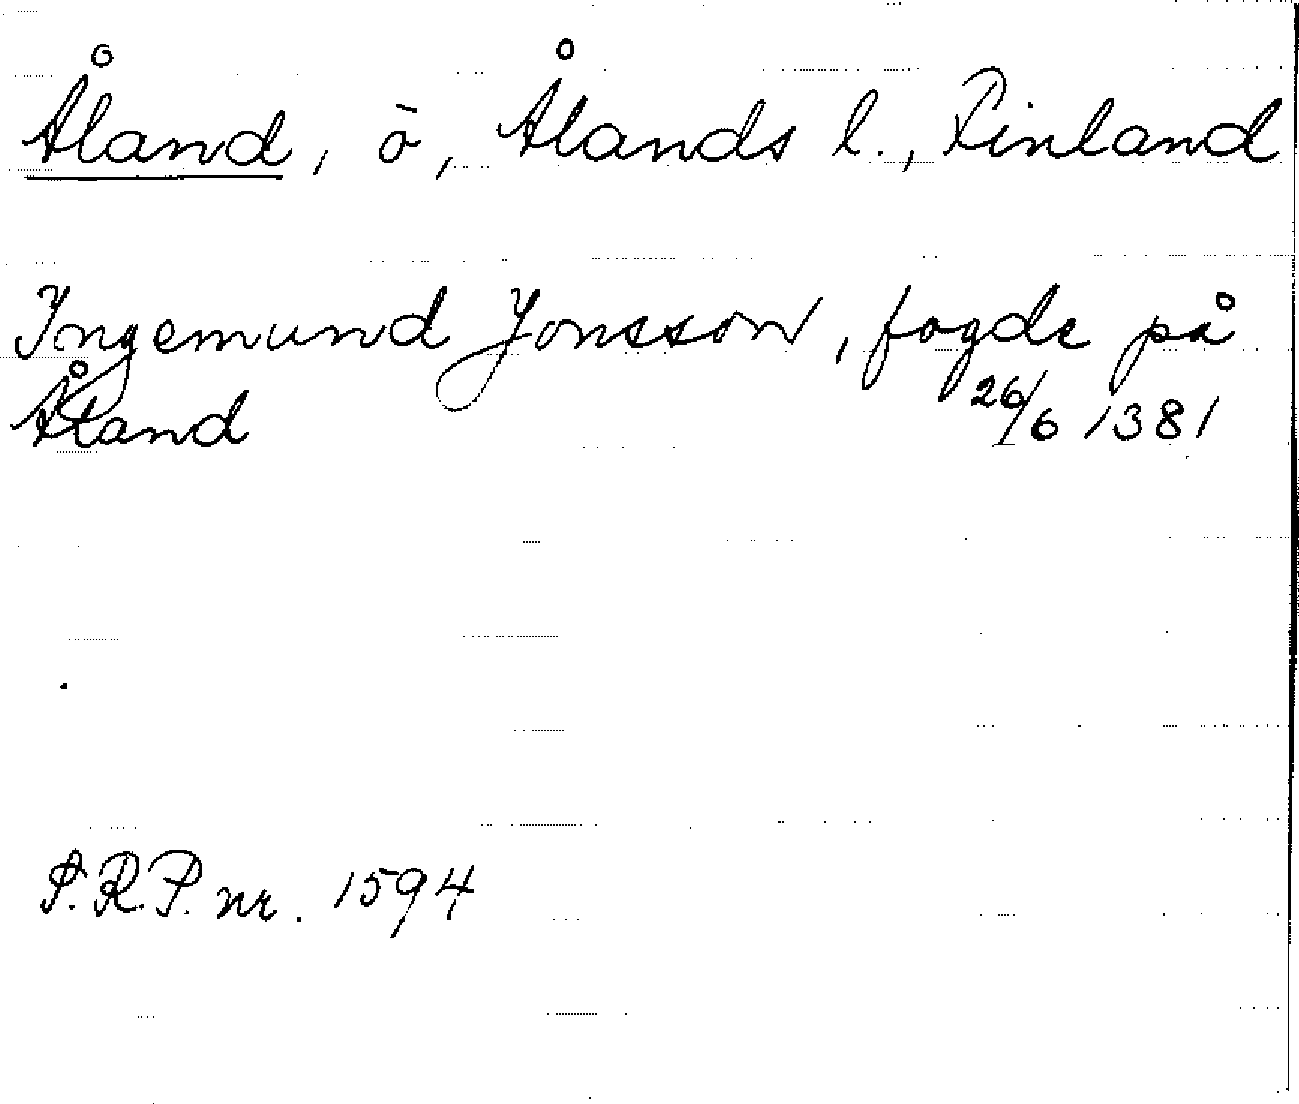 Åland, ö, Ålands l., Finland
Ingemund Jonsson, fogde på
Åland 26/6 1381
S.R.P. nr. 1594